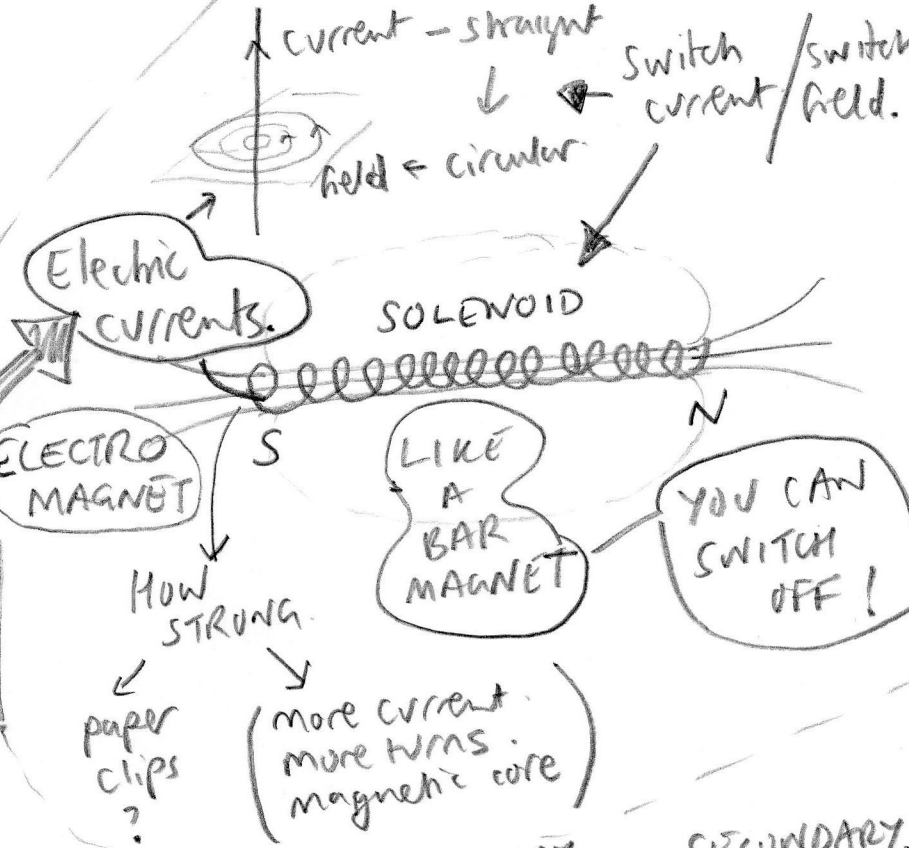 current – straight
↓
field = circular.
switch
current / switch
field.
Electric
currents.
SOLENOID
S
N
ELECTRO
MAGNET
LIKE
A
BAR
MAGNET
YOU CAN
SWITCH
OFF!
HOW
STRONG.
paper
clips
?
(more current.
more turns.
magnetic core)
SECONDARY.